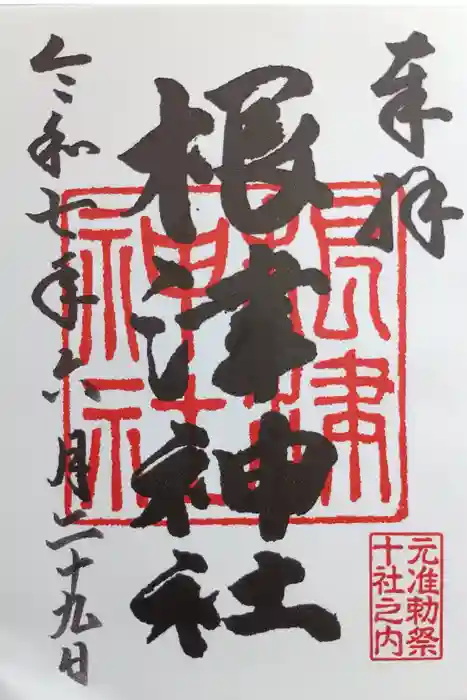 奉拝
根津神社
令和七年六月二十九日
根津神社
元准勅祭
十社之内